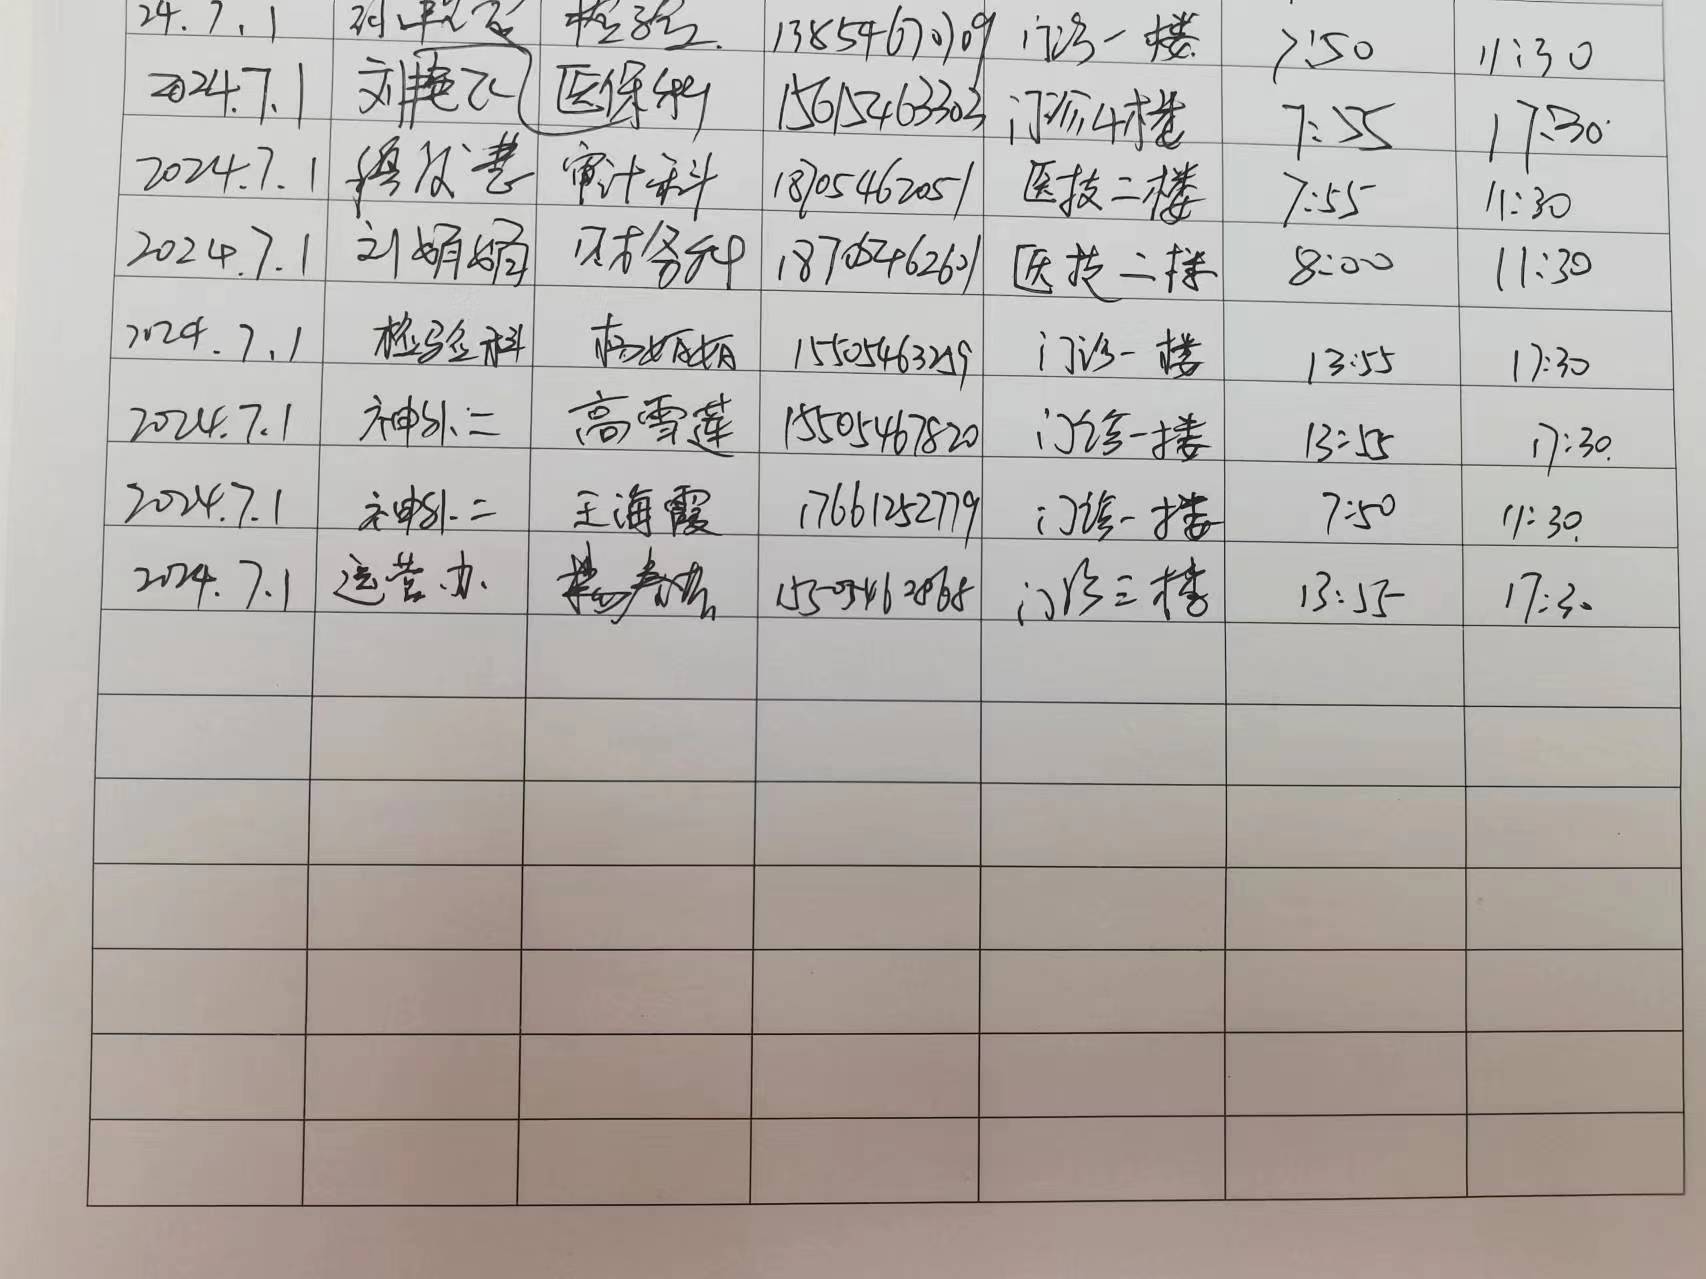 24.7.1 检验 13854670709 门诊一楼 7:50 11:30
2024.7.1 刘艳飞 医保科 15615463303 门诊4楼 7:55 17:30
2024.7.1 审计科 18705462051 医技二楼 7:55 11:30
2024.7.1 刘娟娟 财务科 18705462601 医技二楼 8:00 11:30
2024.7.1 检验科 杨娟娟 15505463259 门诊一楼 13:55 17:30
2024.7.1 神外二 高雪莲 15505467820 门诊一楼 13:55 17:30
2024.7.1 神外二 王海霞 17661252779 门诊一楼 7:50 11:30
2024.7.1 运营办 门诊三楼 13:55 17:30